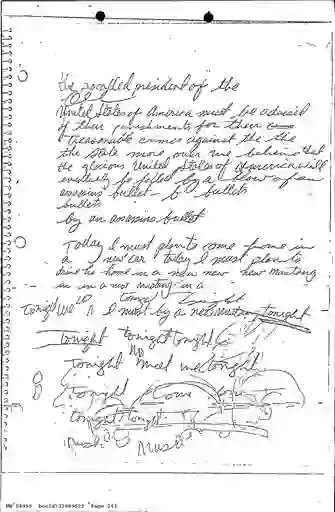 The socalled president of the
United States of America must be advised
of their punishments for their
treasonable crimes against the the
the state more over we believe that
the glorious United States of America will
eventually be felled by a blow of an
assassins bullet b b bullets
bullets
by an assassins bullet
Today I must plan to come home in
a new car today I must plan to
drive to home in a new new new mustang
in in a new mustang in a
tonight
Tonight I must by a new mustang tonight
tonight tonight tonight
No
tonight meet me tonight
tonight
tonight tonight
Music